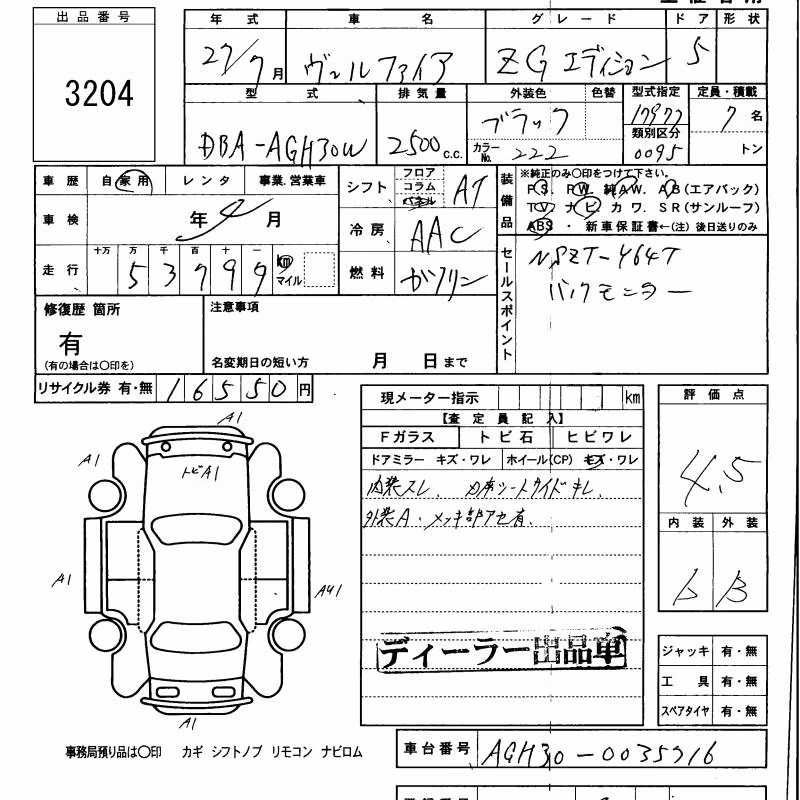 出品番号
3204
年式 車名 グレード ドア 形状
27/7月 ヴェルファイア ZGエディション 5
型式 排気量 外装色 色替 型式指定 定員・積載
DBA-AGH30W 2500c.c. ブラック 17977 7名
カラーNo. 222 類別区分 0095 トン
車歴 自家用 レンタ 事業.営業車
シフト フロア コラム パネル AT
装備品 ※純正のみ○印をつけて下さい。
PS. PW. 純AW. AB(エアバック)
TV. ナビ. カワ. SR(サンルーフ)
ABS・新車保証書←(注)後日送りのみ
車検 年 月
冷房 AAC
走行 十万 万 千 百 十 一
53799 km マイル
燃料 ガソリン
セールスポイント
NSZT-Y64T
バックモニター
修復歴 箇所
有
(有の場合は○印を)
注意事項
名変期日の短い方 月 日まで
リサイクル券 有・無 16550円
現メーター指示 km
【査定員記入】
Fガラス トビ石 ヒビワレ
ドアミラー キズ・ワレ ホイール(CP) キズ・ワレ
内装スレ
外装A・メッキ部アセ有.
ディーラー出品車
評価点
4.5
内装 外装
b B
A1
A1
トビA1
A1
A41
A1
ジャッキ 有・無
工具 有・無
スペアタイヤ 有・無
事務局預り品は○印 カギ シフトノブ リモコン ナビロム
車台番号 AGH30-0035716